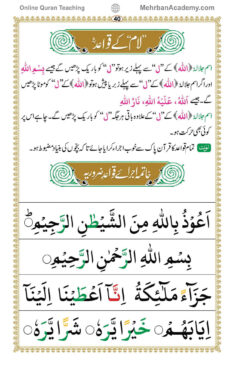 Online Quran Teaching MehrbanAcademy.com
40
"لام" کے قواعد
اسمِ جلالۃ (اللہ) کے "ل" سے پہلے زیر ہو تو "ل" کو باریک پڑھیں گے جیسے بِسْمِ اللّٰهِ
اور اگر اسمِ جلالۃ (اللہ) کے "ل" سے پہلے زبر یا پیش ہو تو (اللہ) کے "ل" کو موٹا پڑھیں
گے۔ جیسے اَللّٰهُ، عَلَيْهُ اللّٰهَ، نَارُ اللّٰهِ
اسمِ جلالۃ (اللہ) کے "ل" کے علاوہ باقی ہر جگہ "ل" کو باریک پڑھیں گے۔ چاہے اس پر
کوئی بھی حرکت ہو۔
نوٹ تمام قواعد کا قرآن پاک سے خوب اجراء کرایا جائے تاکہ بچوں کی بنیاد مضبوط ہو۔
خاتمہ اجرائے قواعد ضروریہ
اَعُوْذُ بِاللّٰهِ مِنَ الشَّيْطٰنِ الرَّجِيْمِ
بِسْمِ اللّٰهِ الرَّحْمٰنِ الرَّحِيْمِ
جَزَآءً مَلٰٓئِكَةُ اِنَّآ اَعْطَيْنَا اِلَيْنَآ
اِيَابَهُمْ خَيْرًا يَّرَهٗ شَرًّا يَّرَهٗ